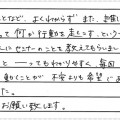 ことなど、よくわからず また、お願
って何か行動を起こす、という
にセンターのことを教えてもらいまし
と ーってもわかりやすく、毎回
動くことが 不安よりも希望に
お願い致します。